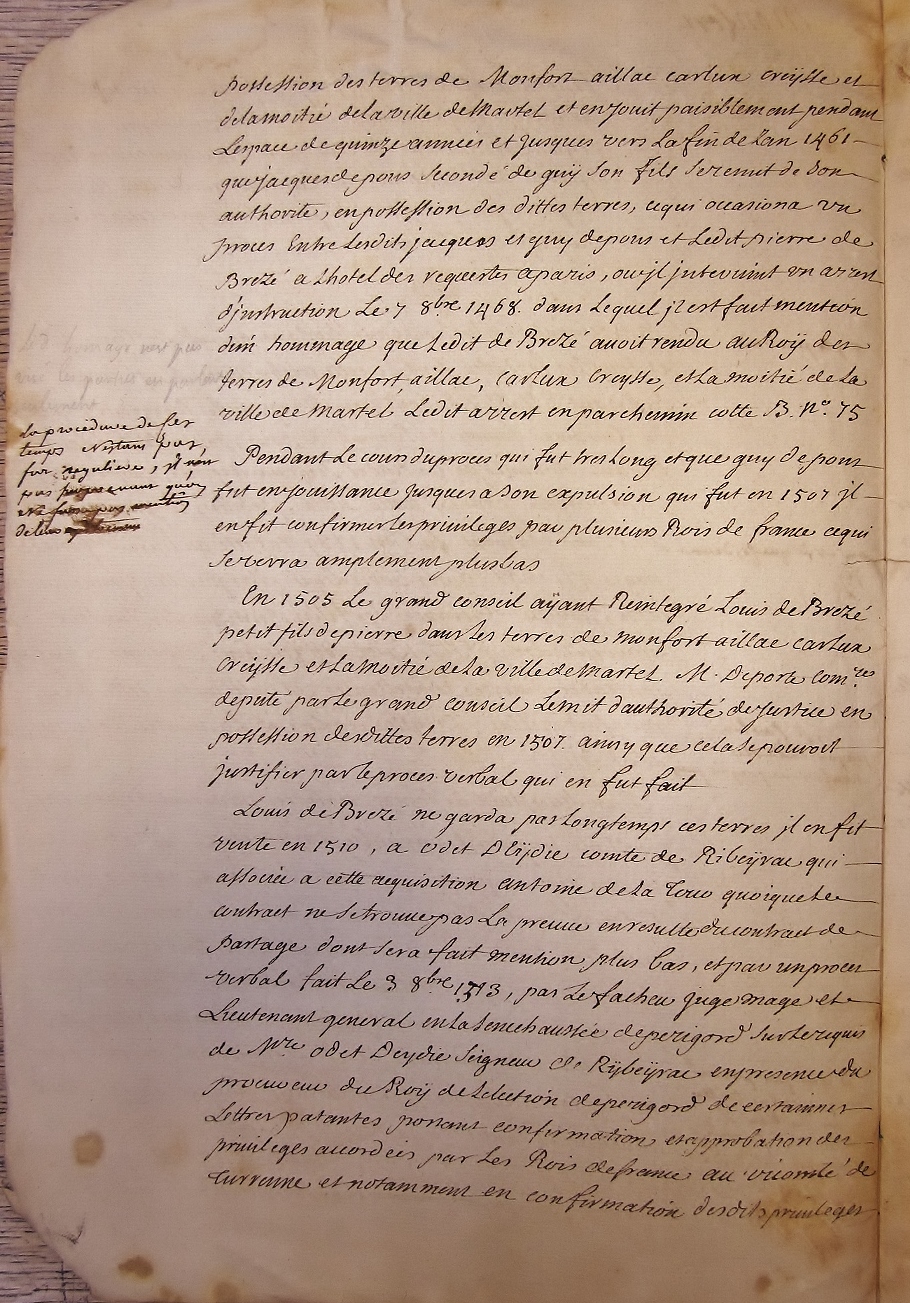 possession des terres de Monfort aillac carlux creÿsse et
delamoitié delaville deMartel et enJouit paisiblement pendant
Lespace de quinze années et Jusques vers Lafin de Lan 1461
que jacques depons Secondé de guÿ Son fils Seremit de Son
authorité, en possession des dittes terres, cequi occasiona un
proces Entre Lesdits jacques et guy depons et Ledit pierre de
Brezé a Lhotel des requestes aparis, ouil jntervint un arrest
d'jnstruction Le 7 8bre 1468. dans Lequel jl est fait mention
dun hommage que Ledit de Brezé avoit rendu auRoÿ des
terres de Monfort, aillac, Carlux Creysse, et La moitié de La
ville de Martel Ledit arrest en parchemin cotte B. n.o 75
Pendant Le cours duproces qui fut tres Long et que guy depons
fut enjouissance jusques a Son expulsion qui fut en 1507 jl
en fit confirmer Les privileges par plusieurs Rois de france cequi
Severra amplement plus bas
En 1505 Le grand conseil aÿant Reintegré Louis deBrezé
petit fils de pierre dans Les terres de monfort aillac carlux
Creÿsse et La moitié de La ville de Martel. M. Deporte Com.re
deputé par Le grand conseil Lemit d'authorité de Justice en
possession desdittes terres en 1507. ainsy que cela Sepouvoit
justifier par le proces verbal qui en fut fait
Louis de Brezé ne garda pas Longtemps ces terres jl en fit
vente en 1510, a odet D'Eÿdie comte de Ribeÿrac qui
associa a cette acquisition antoine de La Tour quoique Le
contract ne Se trouve pas La preuve en resulte du contract de
partage dont Sera fait mention plus bas, et par un proces
verbal fait Le 3 8bre 1513, par Le facheu juge mage et
Lieutenant general en La Senechaussée de perigord Sur Le requis
de Mre odet Deydie Seigneur de Rÿbeÿrac en presence du
procureur du Roÿ de Lelection de perigord de certaines
Lettres patantes portant confirmation et approbation des
privileges accordées par Les Rois de france au vicomté de
Turrenne et notamment en confirmation desdits privileges
La procedure de ces
temps Nestant pas
fort reguliere, jl n'en
pas